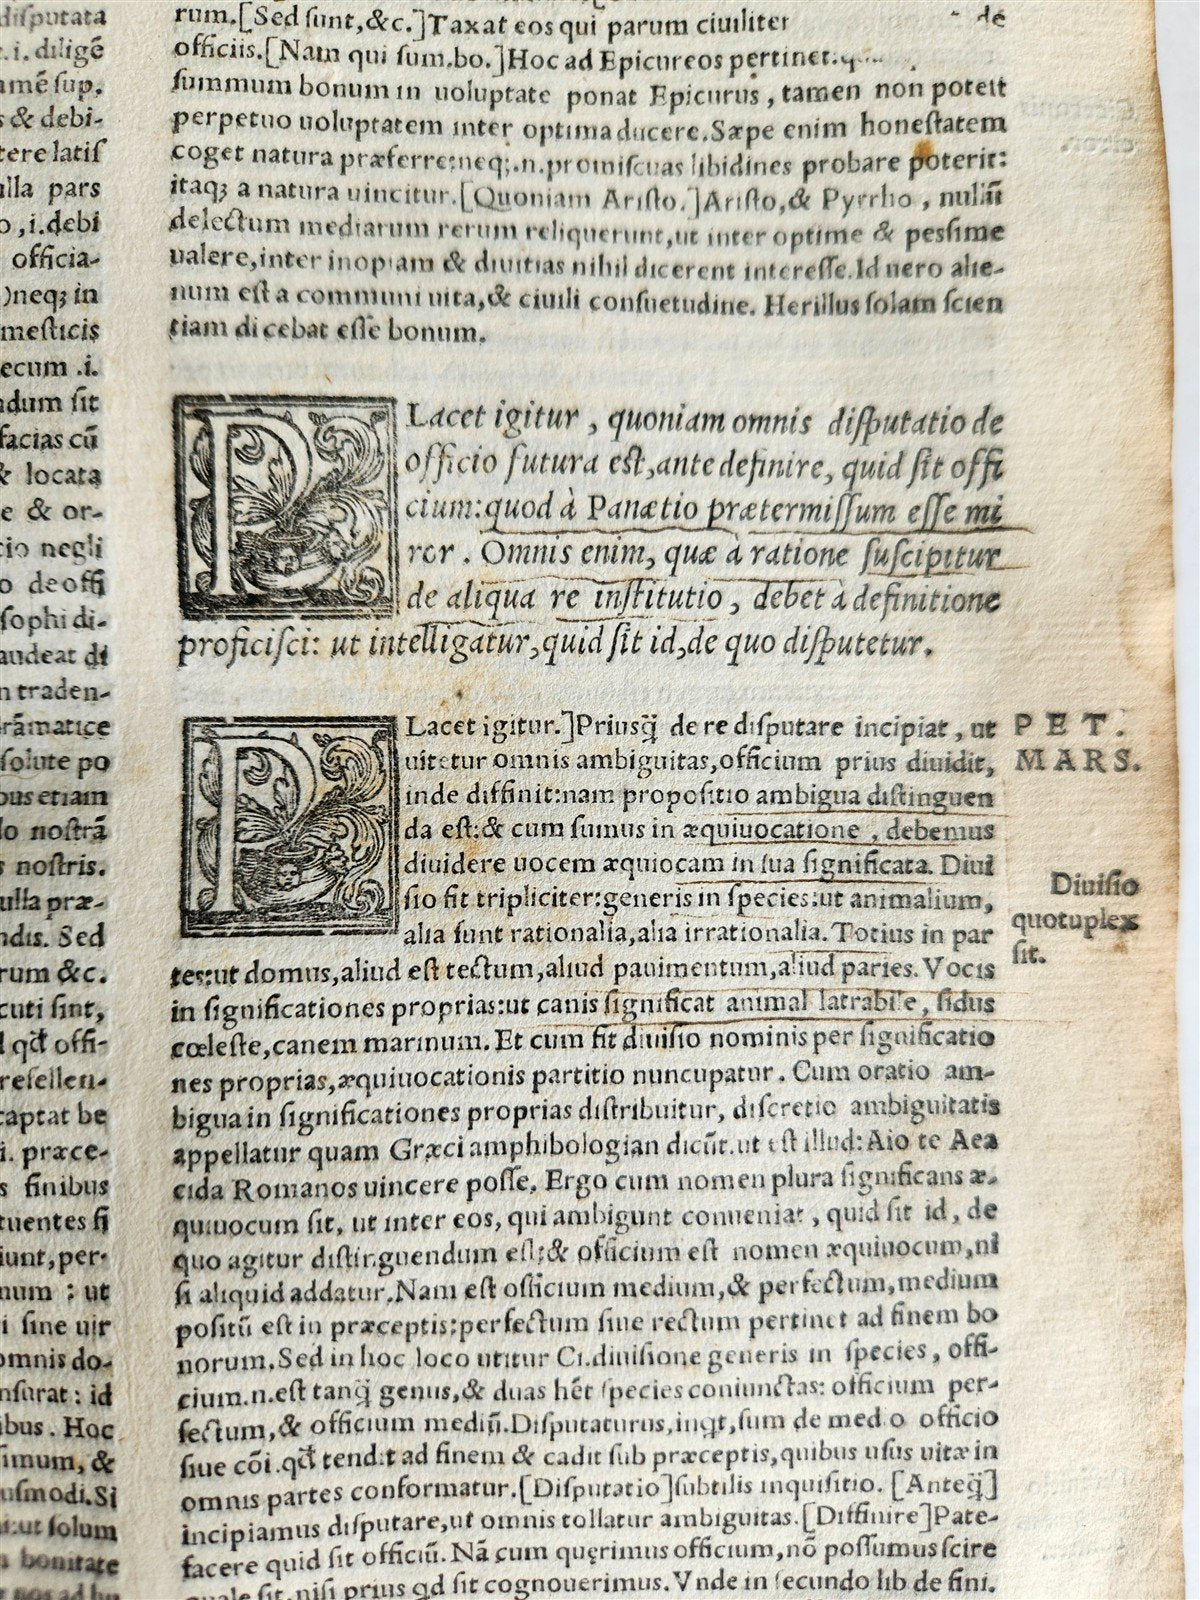 disputata
.i. diligẽ
amẽ sup.
s & debi-
tere latiſ
ulla pars
o, i. debi
officia-
)neqꝫ in
meſticis
ecum .i.
ndum ſit
facias cũ
& locata
e & or-
cio negli
o de offi
ſophi di-
audeat di
n traden-
rãmatice
ſolute po
bus etiam
do noſtrã
s noſtris.
ulla præ-
ndis. Sed
rum &c.
cuti ſint,
offi-
refellen-
captat be
i. præce-
s finibus
tuentes ſi
iunt, per-
num : ut
i ſine uir
omnis do-
nſurat : id
ibus. Hoc
ſimum, &
uſmodi. Si
ut ſolum
bonitate
rum.[Sed ſunt,&c.]Taxat eos qui parum ciuiliter de
officiis.[Nam qui ſum.bo.]Hoc ad Epicureos pertinet:
ſummum bonum in uoluptate ponat Epicurus, tamen non poteſt
perpetuo uoluptatem inter optima ducere.Sæpe enim honeſtatem
coget natura præferre:neqꝫ.n.promiſcuas libidines probare poterit:
itaqꝫ a natura uincitur.[Quoniam Ariſto.]Ariſto,& Pyrrho, nullũ
delectum mediarum rerum reliquerunt,ut inter optime & peſſime
ualere,inter inopiam & diuitias nihil dicerent intereſſe.Id uero alie-
num eſt a communi uita,& ciuili conſuetudine. Herillus ſolam ſcien
tiam dicebat eſſe bonum.
PLacet igitur, quoniam omnis diſputatio de
officio futura eſt,ante definire, quid ſit offi
cium:quod à Panætio prætermiſſum eſſe mi
ror. Omnis enim, quæ à ratione ſuſcipitur
de aliqua re inſtitutio, debet à definitione
proficiſci: ut intelligatur,quid ſit id,de quo diſputetur.
PLacet igitur.]Priuſq̃ de re diſputare incipiat, ut
uitetur omnis ambiguitas,officium prius diuidit,
inde diffinit:nam propoſitio ambigua diſtinguen
da eſt:& cum ſumus in æquiuocatione, debemus
diuidere uocem æquiocam in ſua ſignificata. Diui
ſio fit tripliciter:generis in ſpecies:ut animalium,
alia ſunt rationalia,alia irrationalia. Totius in par
tes:ut domus,aliud eſt tectum,aliud pauimentum,aliud paries. Vocis
in ſignificationes proprias:ut canis ſignificat animal latrabile, ſidus
cœleſte,canem marinum. Et cum fit diuiſio nominis per ſignificatio
nes proprias,æquiuocationis partitio nuncupatur. Cum oratio am-
bigua in ſignificationes proprias diſtribuitur, diſcretio ambiguitatis
appellatur quam Græci amphibologian dicũt.ut eſt illud: Aio te Aea
cida Romanos uincere poſſe. Ergo cum nomen plura ſignificans æ-
quiuocum ſit, ut inter eos, qui ambigunt conueniat, quid ſit id, de
quo agitur diſtinguendum eſt:& officium eſt nomen æquiuocum,ni
ſi aliquid addatur.Nam eſt officium medium,& perfectum,medium
poſitũ eſt in præceptis:perfectum ſiue rectum pertinet ad finem bo
norum.Sed in hoc loco utitur Ci.diuiſione generis in ſpecies, offi-
cium.n.eſt tanq̃ genus,& duas hẽt ſpecies coniunctas: officium per-
fectum,& officium mediũ.Diſputaturus,inqt,ſum de medio officio
ſiue cõi.qđ tendit ad finem & cadit ſub præceptis,quibus uſus uitæ in
omnis partes conformatur.[Diſputatio]ſubtilis inquiſitio. [Anteq̃]
incipiamus diſputare,ut omnis tollatur ambiguitas.[Diffinire]Pate-
facere quid ſit officiũ. Nã cum quęrimus officium,nõ poſſumus ſcire
quale ſit,niſi prius qd ſit cognouerimus. Vnde in ſecundo lib de fini.
PET.
MARS.
Diuiſio
quotuplex
ſit.